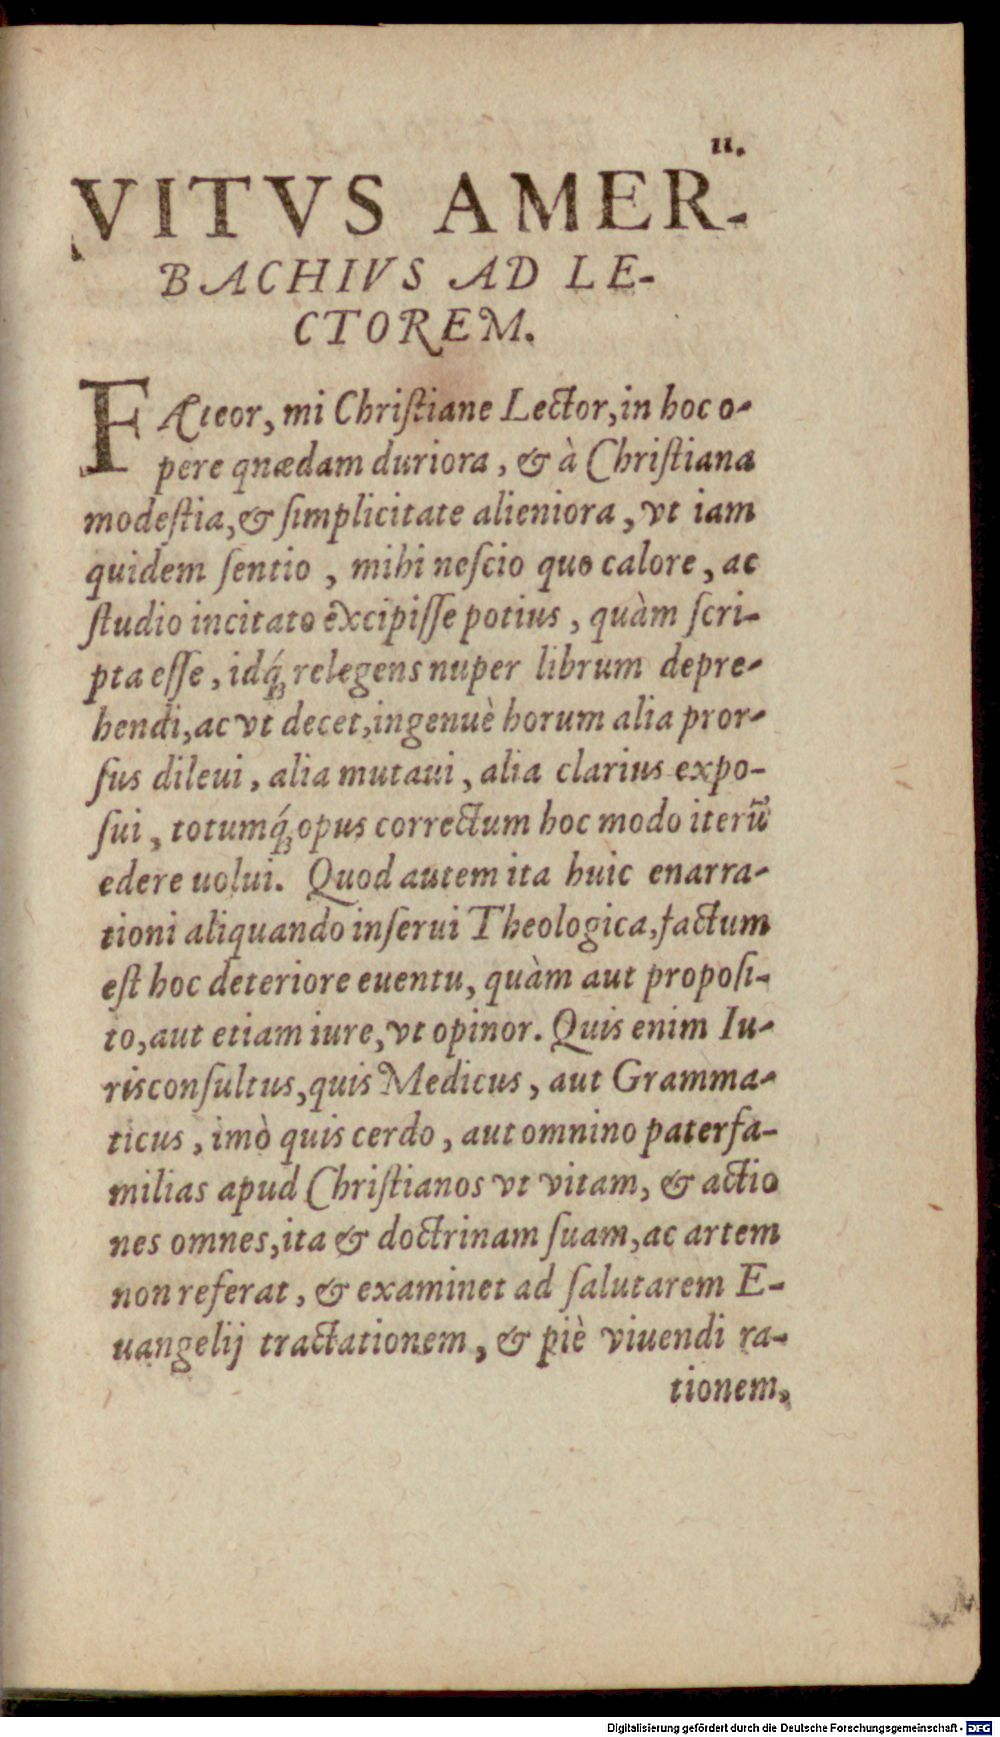 11.
VITVS AMER-
BACHIVS AD LE-
CTOREM.
FAteor, mi Chriſtiane Lector, in hoc o-
pere quædam duriora, & à Chriſtiana
modeſtia, & ſimplicitate alieniora, vt iam
quidem ſentio, mihi neſcio quo calore, ac
ſtudio incitato excipiſſe potius, quàm ſcri-
pta eſſe, idq́ꝫ relegens nuper librum depre-
hendi, ac vt decet, ingenuè horum alia pror-
ſus dileui, alia mutaui, alia clarius expo-
ſui, totumq́ꝫ opus correctum hoc modo iterũ
edere uolui. Quod autem ita huic enarra-
tioni aliquando inſerui Theologica, factum
eſt hoc deteriore euentu, quàm aut propoſi-
to, aut etiam iure, vt opinor. Quis enim Iu-
risconſultus, quis Medicus, aut Gramma-
ticus, imò quis cerdo, aut omnino paterfa-
milias apud Chriſtianos vt vitam, & actio
nes omnes, ita & doctrinam ſuam, ac artem
non referat, & examinet ad ſalutarem E-
uangelij tractationem, & piè viuendi ra-
tionem,
Digitalisierung gefördert durch die Deutsche Forschungsgemeinschaft - DFG